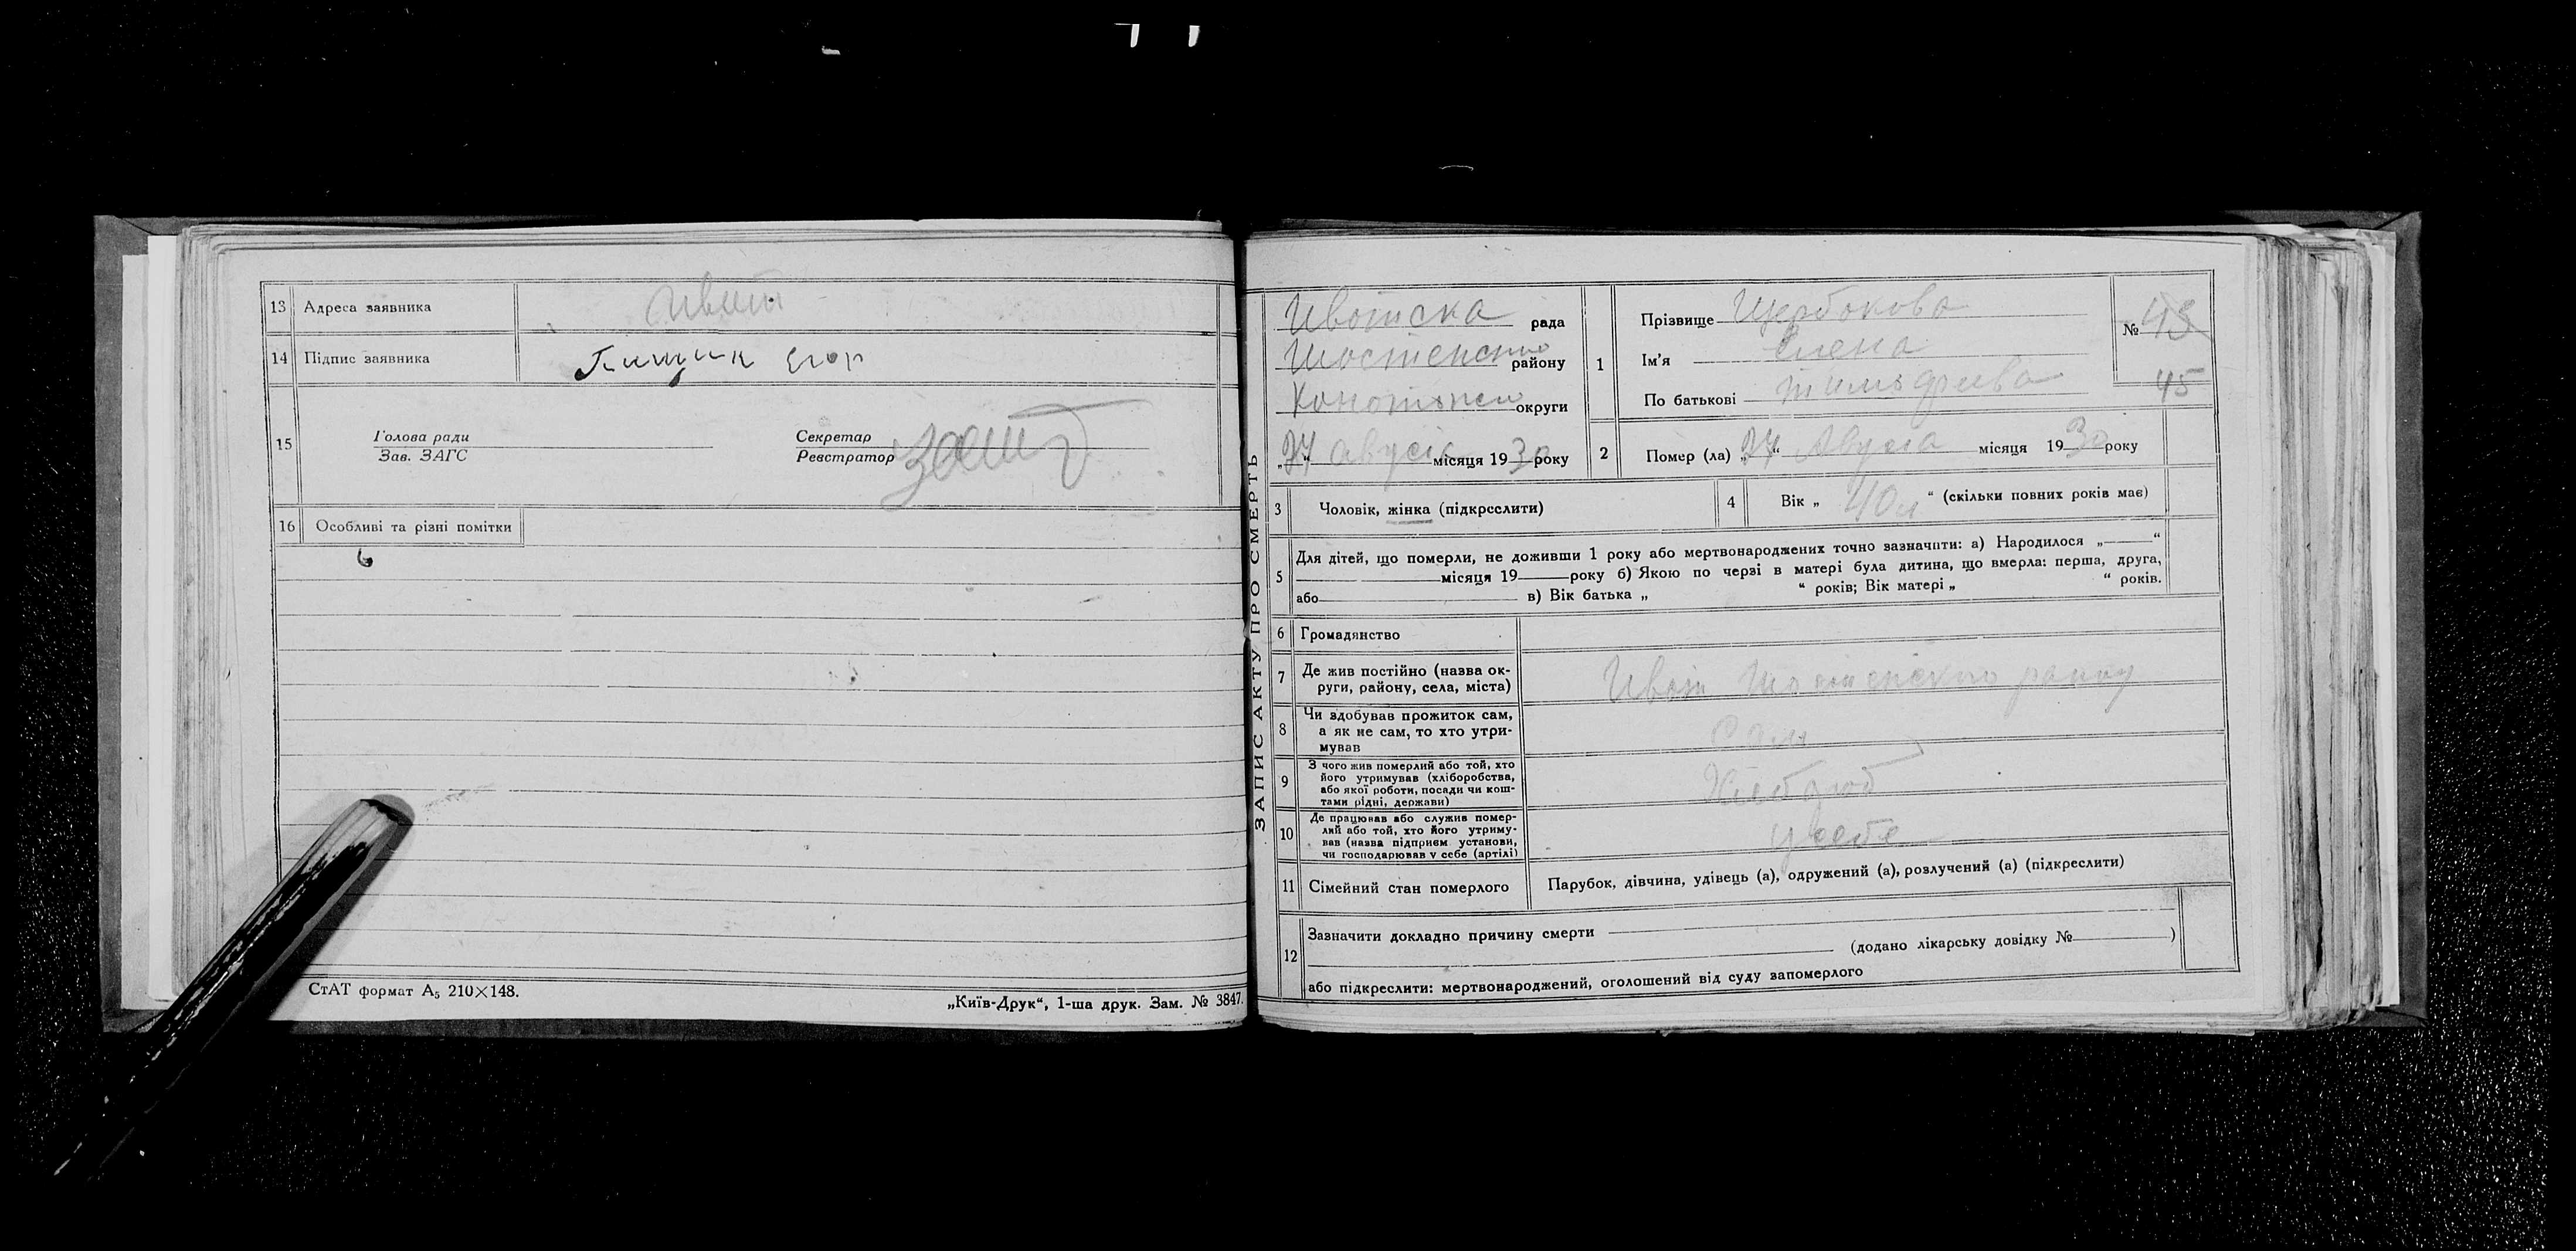 13 Адреса заявника Ивот
14 Підпис заявника Пищик Егор
15 Голова ради
Зав. ЗАГС
Секретар
Реєстратор
16 Особливі та різні помітки
СтАТ формат А₅ 210×148.
„Київ-Друк“, 1-ша друк. Зам. № 3847.
ЗАПИС АКТУ ПРО СМЕРТЬ
Ивотска рада
Шостенско району
округи
„27“ августа місяця 1930 року
1 Прізвище Щербакова
Ім'я Елена
По батькові
№ 43
45
2 Помер (ла) „27“ Августа місяця 1930 року
3 Чоловік, жінка (підкреслити)
4 Вік „40 л“ (скільки повних років має)
5 Для дітей, що померли, не доживши 1 року або мертвонароджених точно зазначити: а) Народилося „—“
місяця 19 року б) Якою по черзі в матері була дитина, що вмерла: перша, друга,
або в) Вік батька „ “ років; Вік матері „ “ років.
6 Громадянство
7 Де жив постійно (назва ок-
руги, району, села, міста)
Ивот Шостенского району
8 Чи здобував прожиток сам,
а як не сам, то хто утри-
мував
Сам
9 З чого жив померлий або той, хто
його утримував (хліборобства,
або якої роботи, посади чи кош-
тами рідні, держави)
Хлебороб
10 Де працював або служив помер-
лий або той, хто його утриму-
вав (назва підприєм. установи,
чи господарював у себе (артілі)
у себе
11 Сімейний стан померлого Парубок, дівчина, удівець (а), одружений (а), розлучений (а) (підкреслити)
12 Зазначити докладно причину смерти
(додано лікарську довідку № )
або підкреслити: мертвонароджений, оголошений від суду запомерлого